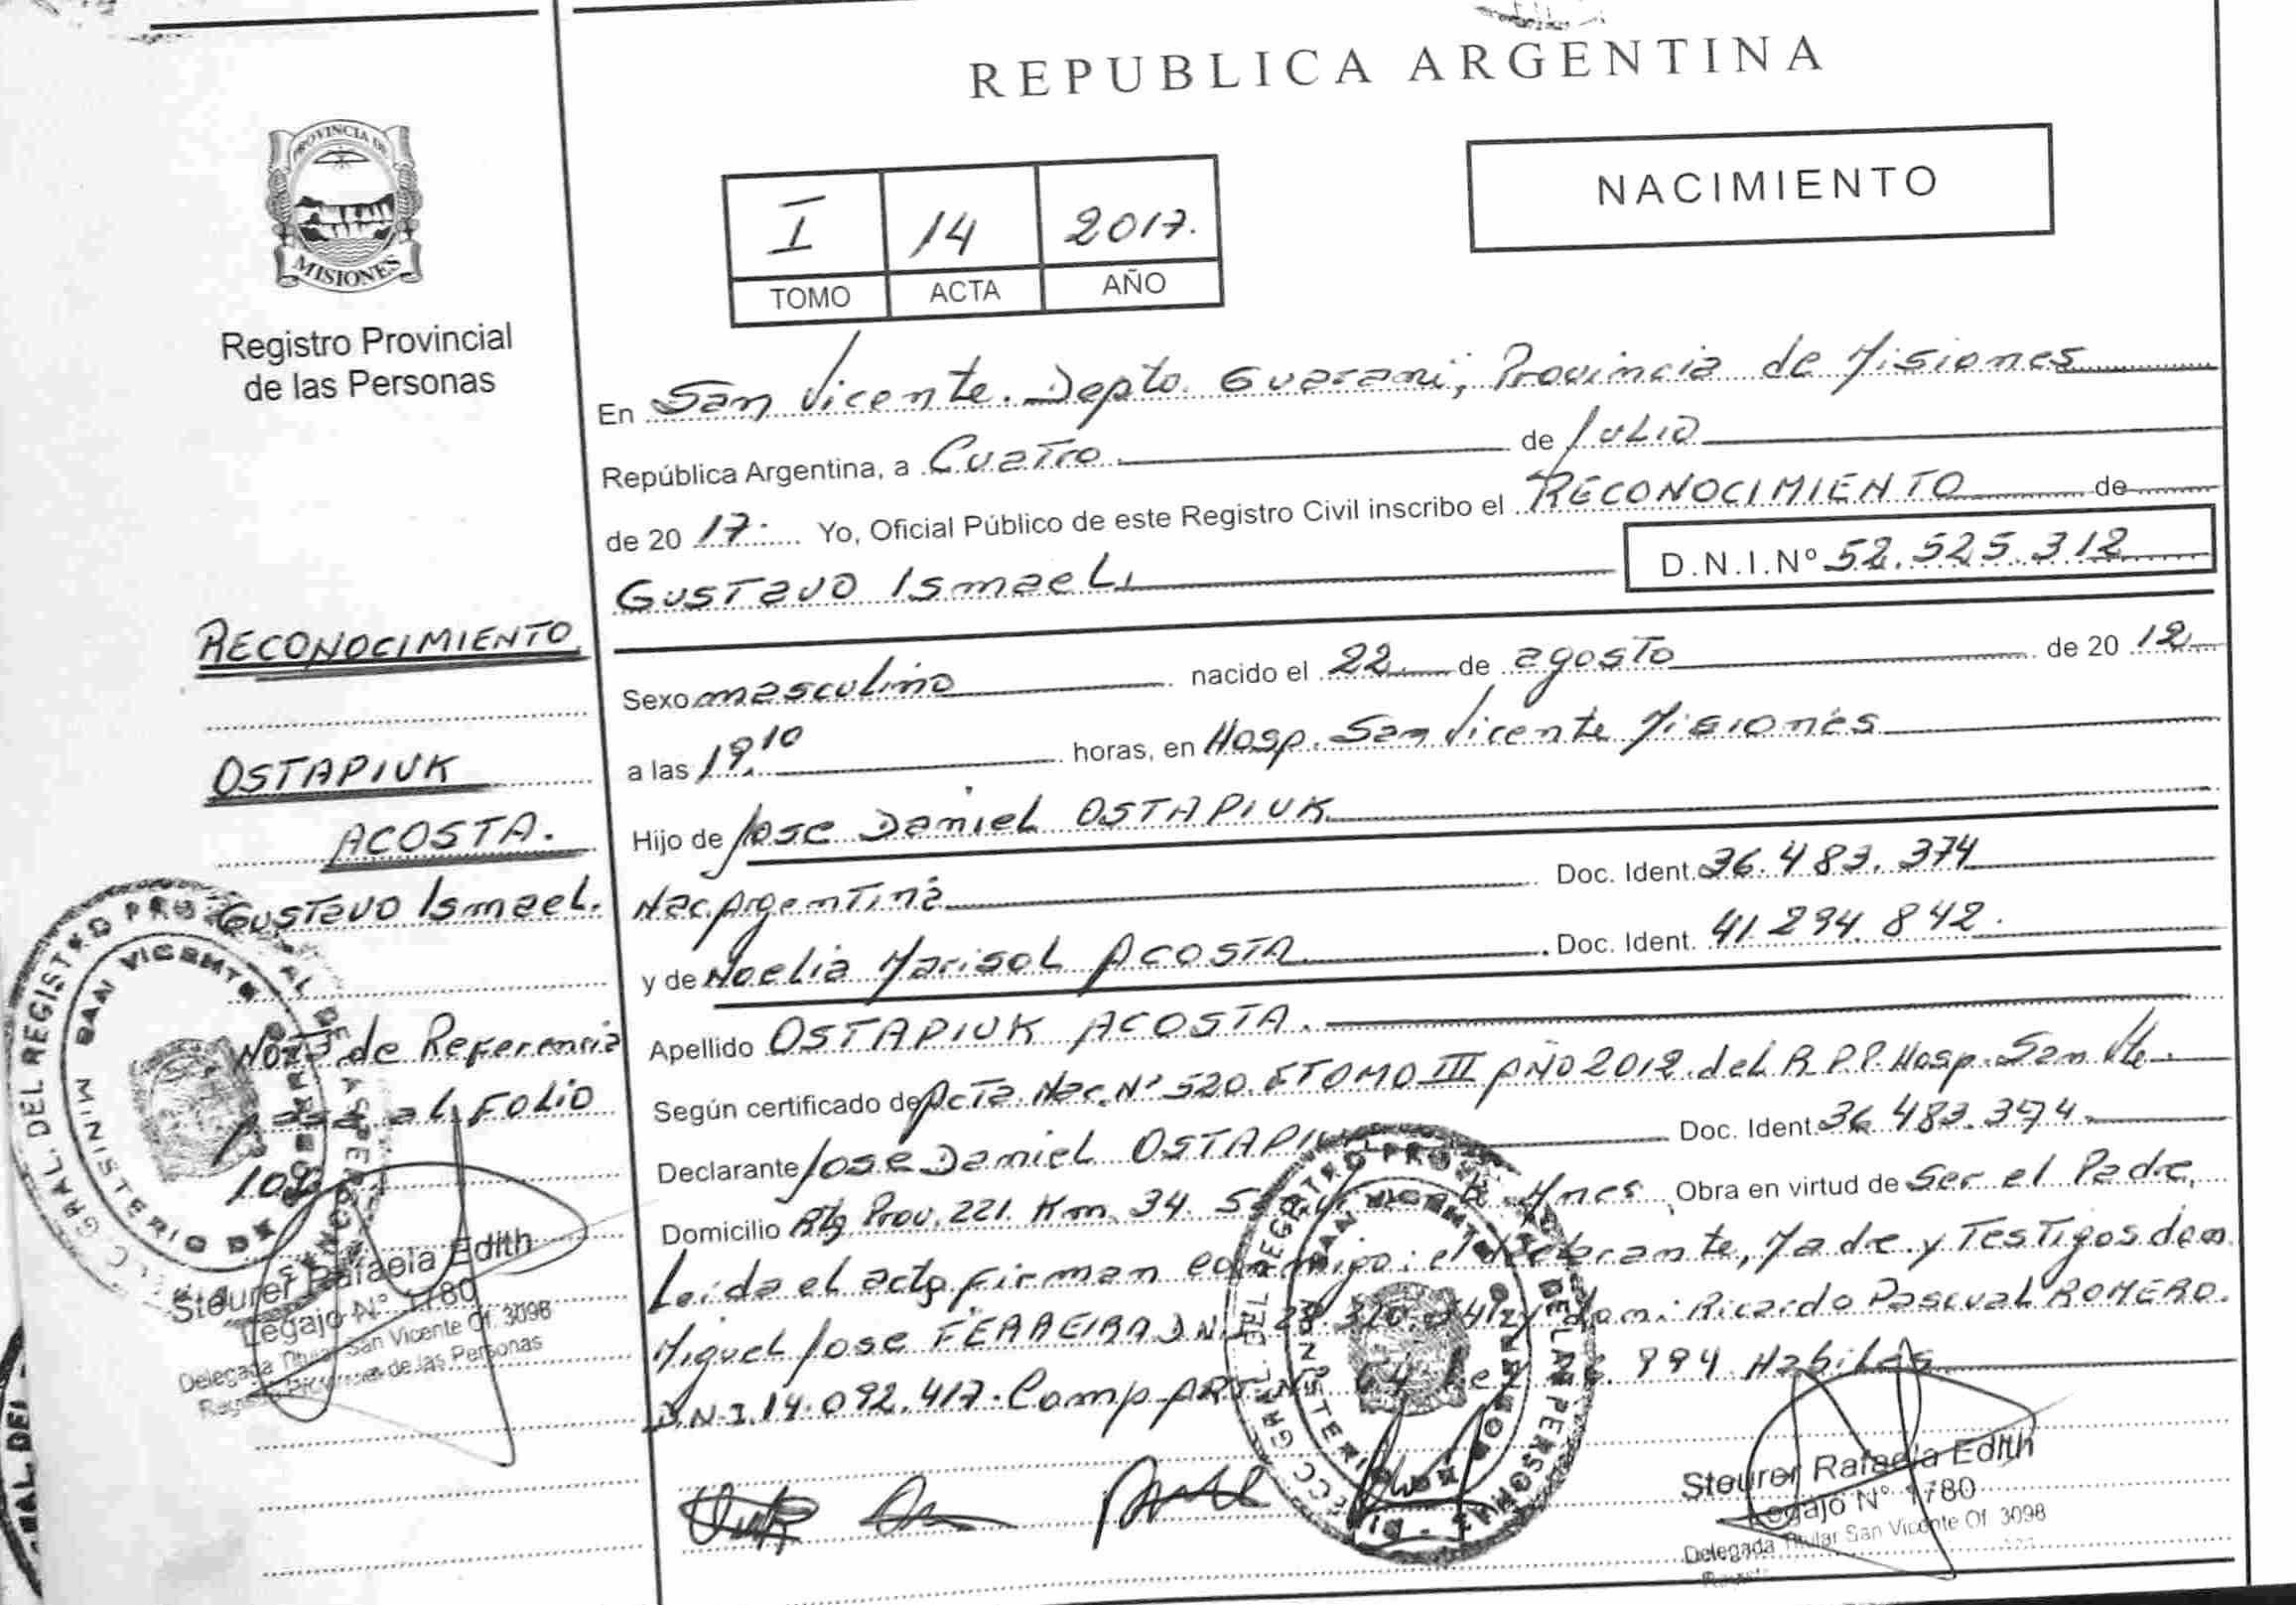 REPUBLICA ARGENTINA
PROVINCIA DE
MISIONES
Registro Provincial
de las Personas
NACIMIENTO
I 14 2017.
TOMO ACTA AÑO
En San Vicente. Depto. Guarani, Provincia de Misiones
República Argentina, a Cuatro. de Julio
de 20 17. Yo, Oficial Público de este Registro Civil inscribo el RECONOCIMIENTO de
Gustavo Ismael.
D.N.I.Nº 52.525.312
Sexo masculino nacido el 22 de agosto de 20 12
a las 19.10 horas, en Hosp. San Vicente Misiones
Hijo de Jose Daniel OSTAPIUK
Nac. Argentina Doc. Ident. 36.483.374
y de Noelia Marisol ACOSTA. Doc. Ident. 41.294.842.
Apellido OSTAPIUK ACOSTA.
Según certificado de Acta Nac. Nº 520. TOMO III AÑO 2012. del R.P.P. Hosp. San Vte.
Declarante Jose Daniel OSTAPIUK Doc. Ident. 36.483.374.
Domicilio Rta Prov. 221. Km. 34. Mnes, Obra en virtud de Ser el Padre,
Leida el acta firman conmigo: el declarante, Madre y Testigos don
Miguel Jose FERREIRA D.N.I. y don: Ricardo Pascual ROMERO.
D.N.I. 14.092.417. Comp. ART. Nº 64 Ley 26.994. Habiles
RECONOCIMIENTO
OSTAPIUK
ACOSTA.
Gustavo Ismael.
Nota de Referencia
al FOLIO
108
Steurer Rafaela Edith
Legajo N° 1780
Delegada Titular San Vicente Of. 3098
de las Personas
Steurer Rafaela Edith
Legajo N° 1780
Delegada Titular San Vicente Of. 3098